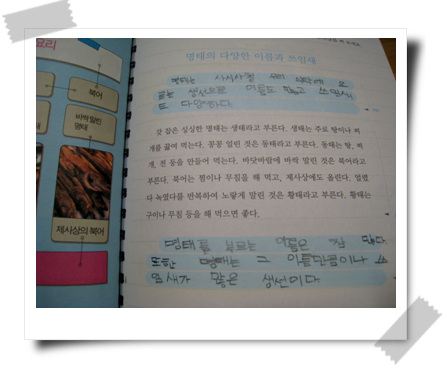 요리
북어
바싹 말린
명태
제사상의 북어
명태의 다양한 이름과 쓰임새
명태는 사시사철 우리 식탁에 오
르는 생선으로 이름도 많고 쓰임새
도 다양하다.
갓 잡은 싱싱한 명태는 생태라고 부른다. 생태는 주로 탕이나 찌
개를 끓여 먹는다. 꽁꽁 얼린 것은 동태라고 부른다. 동태는 탕, 찌
개, 전 등을 만들어 먹는다. 바닷바람에 바싹 말린 것은 북어라고
부른다. 북어는 찜이나 무침을 해 먹고, 제사상에도 올린다. 얼렸
다 녹였다를 반복하여 노랗게 말린 것은 황태라고 부른다. 황태는
구이나 무침 등을 해 먹으면 좋다.
명태를 부르는 이름은 참 많다.
또한 명태는 그 이름만큼이나 쓰
임새가 많은 생선이다.